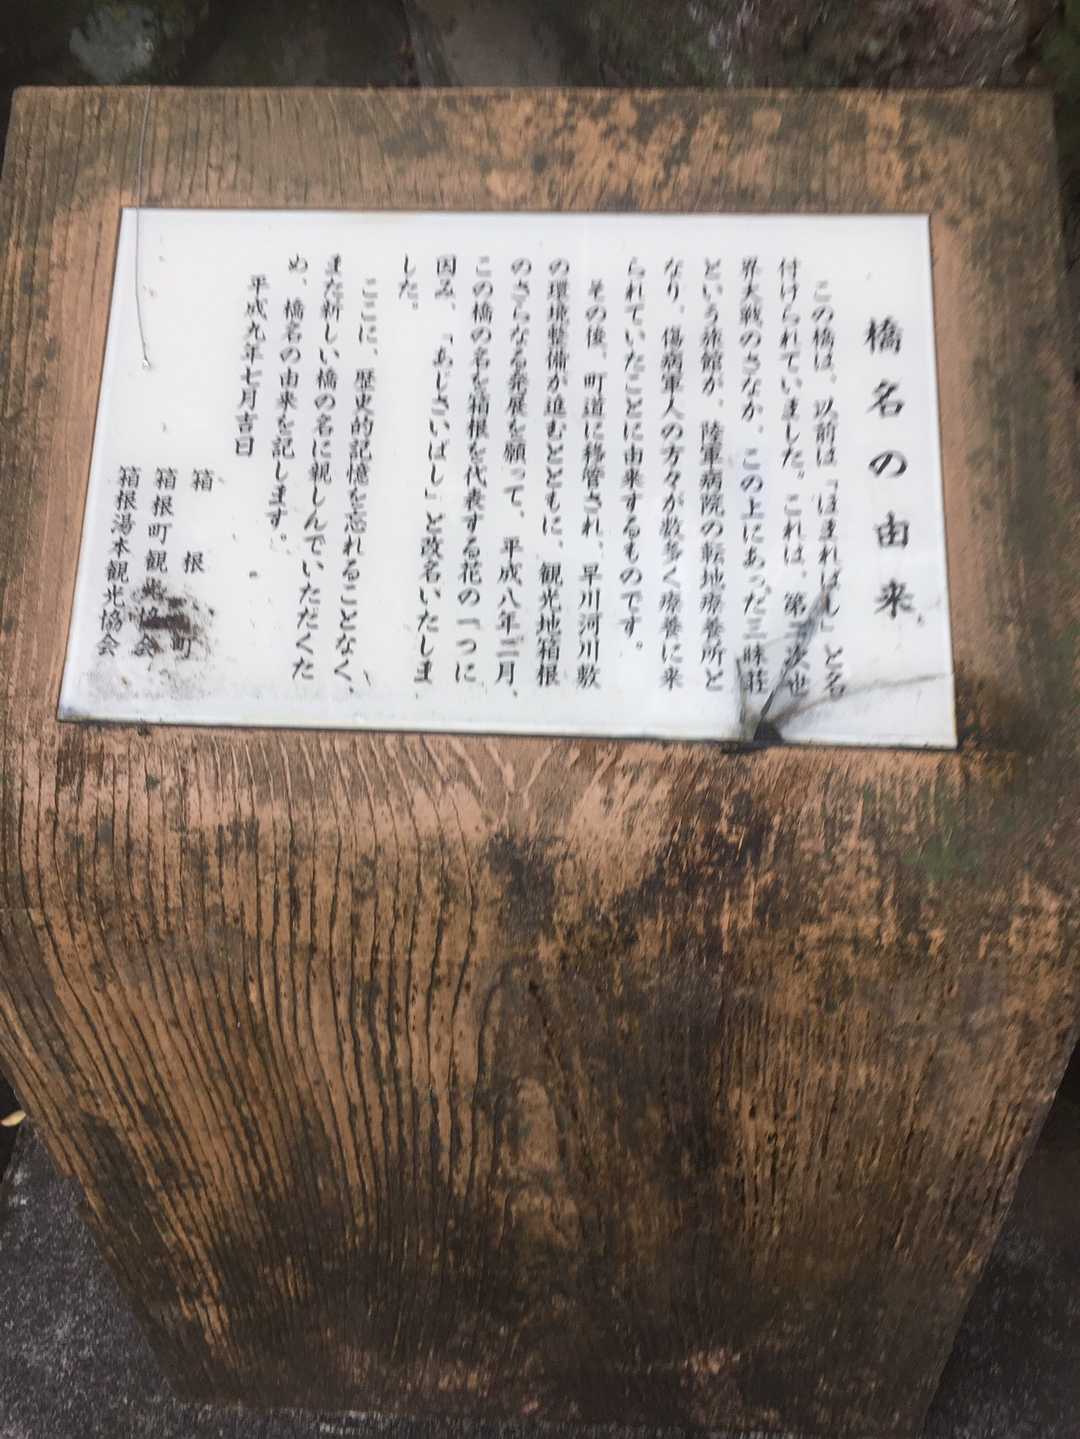 橋名の由来
この橋は、以前は「ほまればし」と名
付けられていました。これは、第二次世
界大戦のさなか、この上にあった三昧荘
という旅館が、陸軍病院の転地療養所と
なり、傷病軍人の方々が数多く療養に来
られていたことに由来するものです。
その後、町道に移管され、早川河川敷
の環境整備が進むとともに、観光地箱根
のさらなる発展を願って、平成八年二月、
この橋の名を箱根を代表する花の一つに
因み、「あじさいばし」と改名いたしま
した。
ここに、歴史的記憶を忘れることなく、
また新しい橋の名に親しんでいただくた
め、橋名の由来を記します。
平成九年七月吉日
箱根町
箱根町観光協会
箱根湯本観光協会